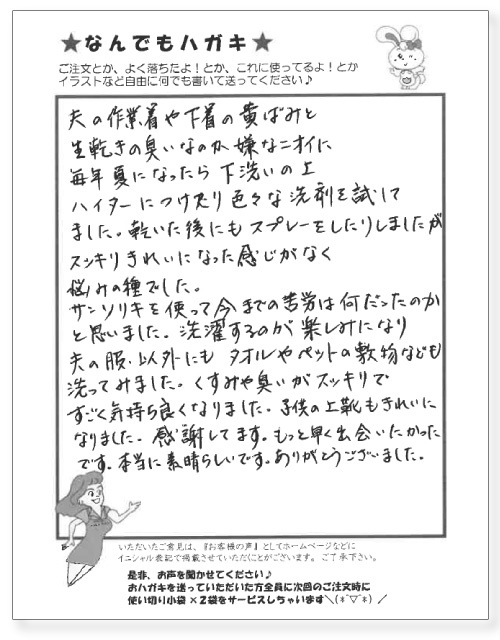 ★なんでもハガキ★
ご注文とか、よく落ちたよ！とか、これに使ってるよ！とか
イラストなど自由に何でも書いて送ってください♪
夫の作業着や下着の黄ばみと
生乾きの臭いなのか嫌なニオイに
毎年夏になったら下洗いの上
ハイターにつけたり色々な洗剤を試して
ました。乾いた後にもスプレーをしたりしましたが
スッキリきれいになった感じがなく
悩みの種でした。
サンソリキを使って今までの苦労は何だったのか
と思いました。洗濯するのが楽しみになり
夫の服以外にもタオルやペットの敷物なども
洗ってみました。くすみや臭いがスッキリで
すごく気持ち良くなりました。子供の上靴もきれいに
なりました。感謝してます。もっと早く出会いたかった
です。本当に素晴らしいです。ありがとうございました。
いただいたご意見は、『お客様の声』としてホームページなどに
イニシャル表記で掲載させていただくことがございます。ご了承下さい。
是非、お声を聞かせてください♪
おハガキを送っていただいた方全員に次回のご注文時に
使い切り小袋×２袋をサービスしちゃいます＼(*´▽`*)／